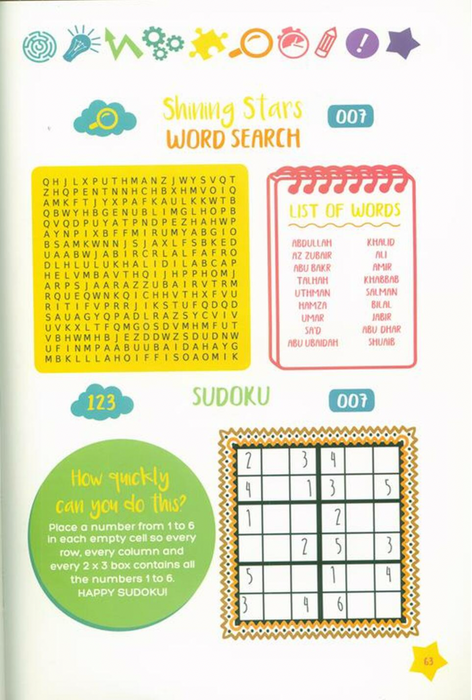 Shining Stars
WORD SEARCH
007
QHJLXPUTHMANZJWYSVQT
ZHQPENTNNHCHBXHMVOIQ
AMKFTJYXPAFKAULKKWTB
QBWYHBGENUBLIMGLHOPB
QVQDPUYATPNDPEZHAHWP
AYNPIXBFFMIRUMYABGIO
BSAMKWNNJSJAXLFSBKED
UAABWJABIRCRLALFAFRO
DLHLULUKHALIDILABCAP
HELVMBAVTHQIJHPPHOMJ
ARPSJAARAZZUBAIRVTRM
RQUEQWNKQICHHVTHXFVU
RITIFVPRRJIKSTUFQDQD
SAUAGYQPADLRAZSYCVIV
UVKXLTFQMGOSDVMHMFUT
VBHWMHBJEZDDWZSDUDNW
UFINMPAABUUBAIDAHAYG
MBKLLLAHQIFFISOAOMIK
LIST OF WORDS
ABDULLAH
AZ ZUBAIR
ABU BAKR
TALHAH
UTHMAN
HAMZA
UMAR
SA'D
ABU UBAIDAH
KHALID
ALI
AMIR
KHABBAB
SALMAN
BILAL
JABIR
ABU DHAR
SHUAIB
123
SUDOKU
007
How quickly
can you do this?
Place a number from 1 to 6
in each empty cell so every
row, every column and
every 2 x 3 box contains all
the numbers 1 to 6.
HAPPY SUDOKU!
2 3 4
4 1 3 5
1 2
2 5 3
5 1 4
3 4 6
63